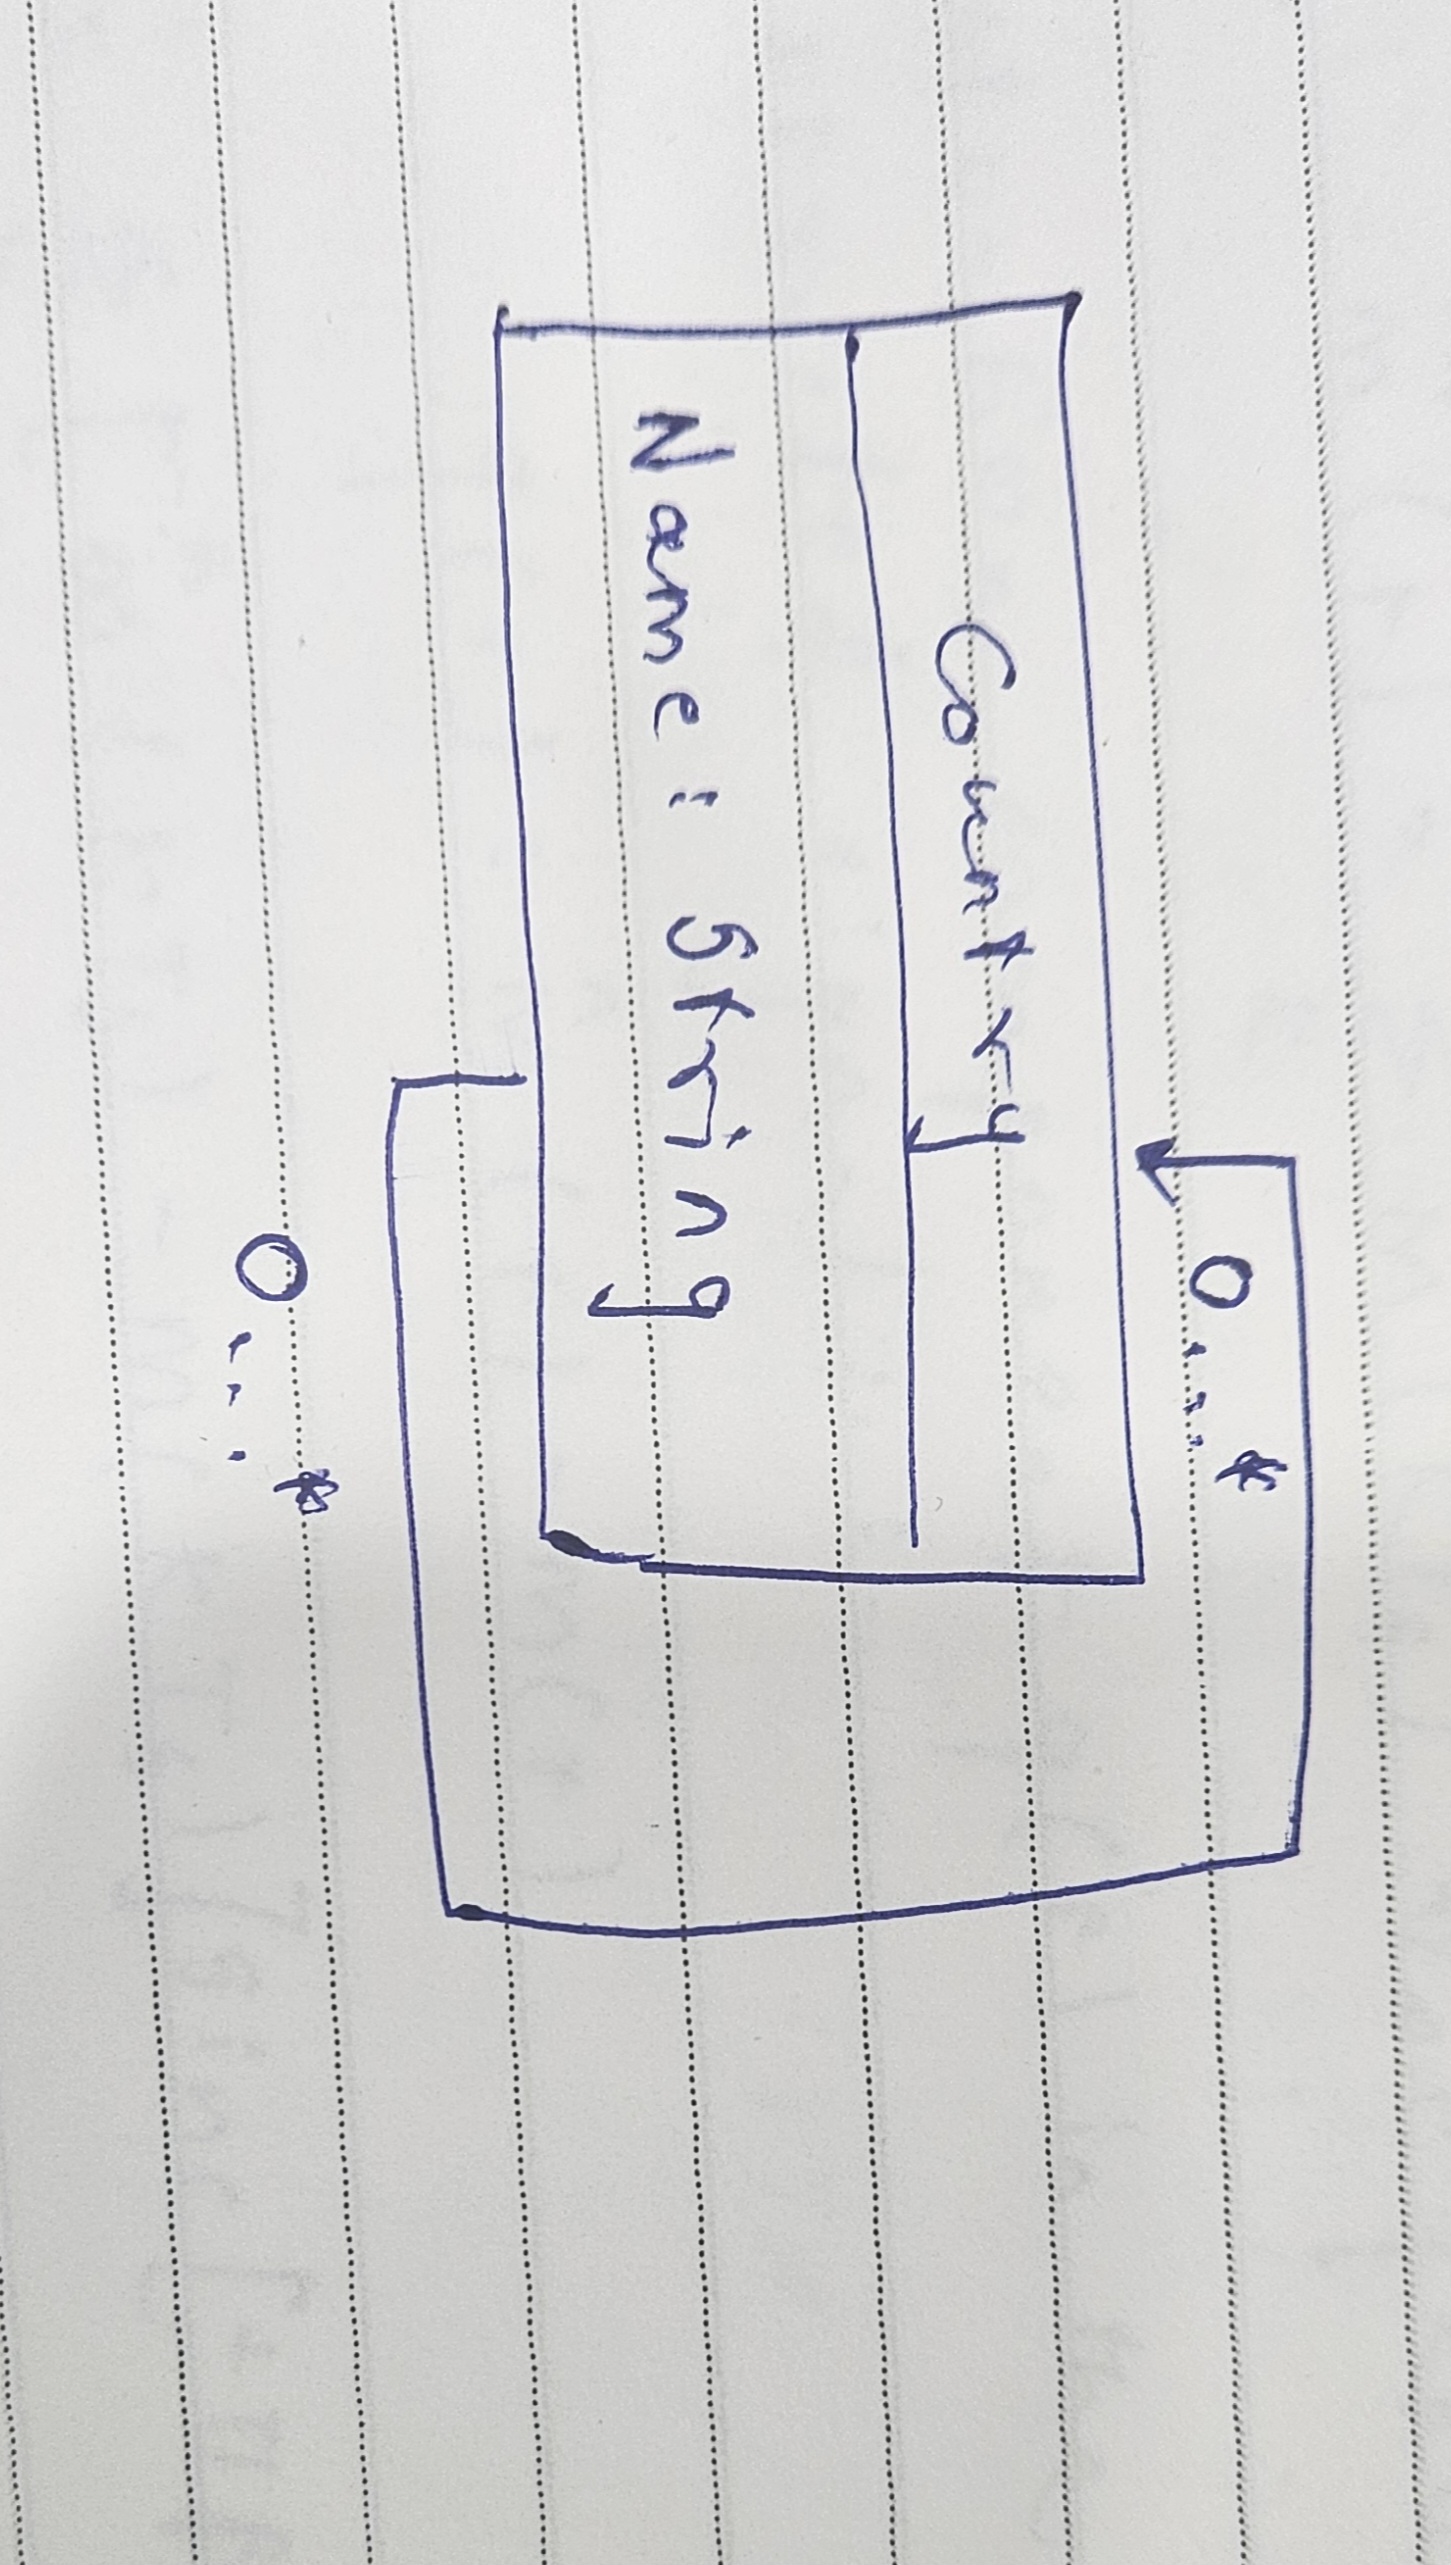 0...*
Country
Name: String
0...*